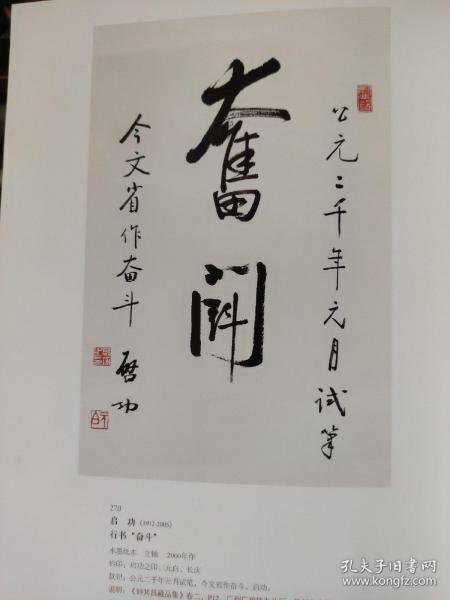 公元二千年元月試筆
奮
閗
今文省作奋斗
啓功
270
启 功 (1912-2005)
行书“奋斗”
水墨纸本 立轴 2000年作
钤印：启功之印、元白、长庆
款识：公元二千年元月试笔，今文省作奋斗。启功。
说明：藏品集》卷二，P12，
孔夫子旧书网